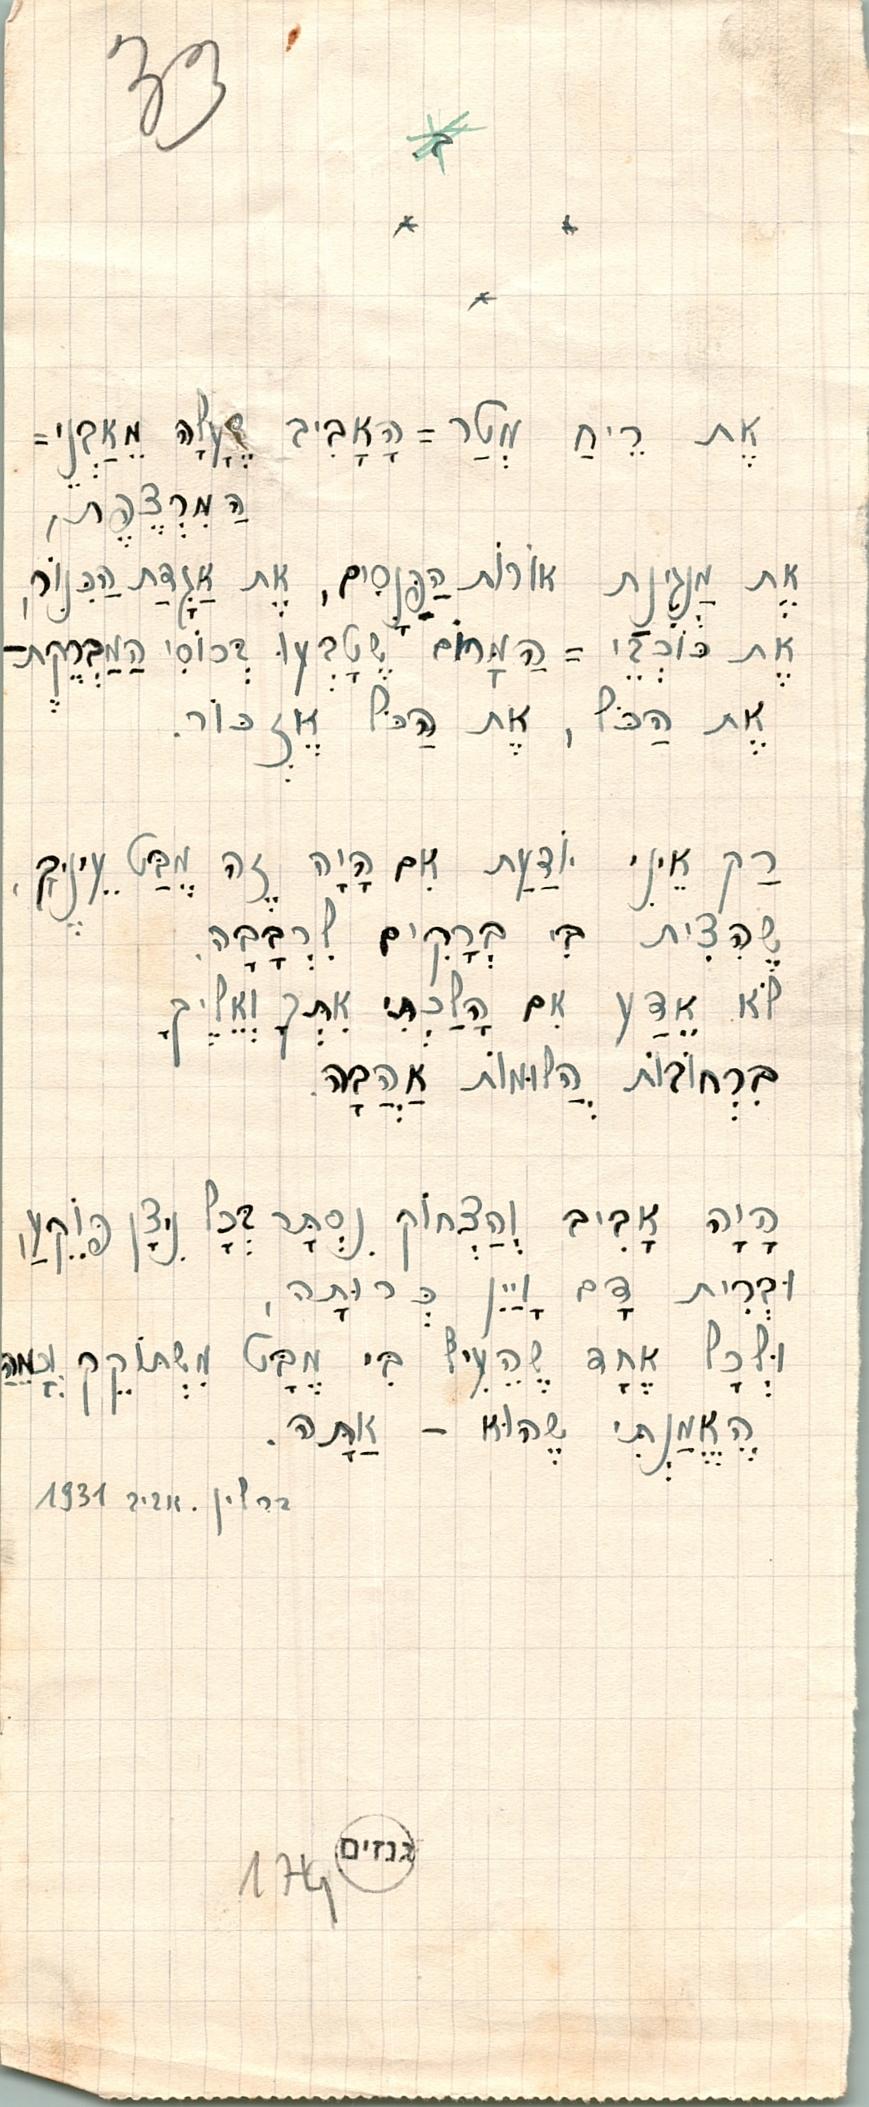 33
ב.
* *
*
אֶת רֵיחַ מְטַר=הָאָבִיב שֶׁעָלָה מֵאַבְנֵי=
הַמִּרְצֶפֶת,
אֶת מַנְגִינַת אוֹרוֹת הַפָּנָסִים, אֶת אַגָּדַת הַכִּנּוֹר,
אֶת כּוֹכְבֵי=הַמָּרוֹם שֶׁטָּבְעוּ בְכוֹסִי הַמַּבְרֶקֶת–
אֶת הַכֹּל, אֶת הַכֹּל אֶזְכּוֹר.
רַק אֵינִי יוֹדַעַת אִם הָיָה זֶה מַבַּט עֵינֶיךָ,
שֶׁהִצִּית בִּי בְּרָקִים לִרְבָבָה.
לֹא אֵדַע אִם הָלַכְתִּי אִתְּךָ וְאֵלֶיךָ
בִּרְחוֹבוֹת הֲלוּמוֹת אַהֲבָה.
הָיָה אָבִיב וְהַצְּחוֹק נִסְתָּר בְּכָל נִיצָן פּוֹקֵעַ,
וּבְרִית דָּם וָיַיִן כְּרוּתָה,
וּלְכָל אֶחָד שֶׁהֵעִיף בִּי מַבָּט מִשְׁתּוֹקֵק וְכָמֵהַּ
הֶאֱמַנְתִּי שֶׁהוּא – אַתָּה.
ברלין. אביב 1931
גנזים